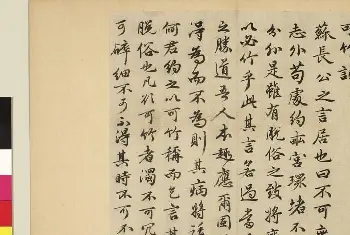 可竹記
蘇長公之言居也曰不可
志外苟處約齋宮環堵不
分外是雖有脫俗之致將
以必竹乎此其言若過當
之勝道吾人本趣應爾固
得為而不為則其病將
何君約之以可竹稱而乞言其
脫俗也凡欲可竹者濁不可冗
可碎細不可不得其時不可不